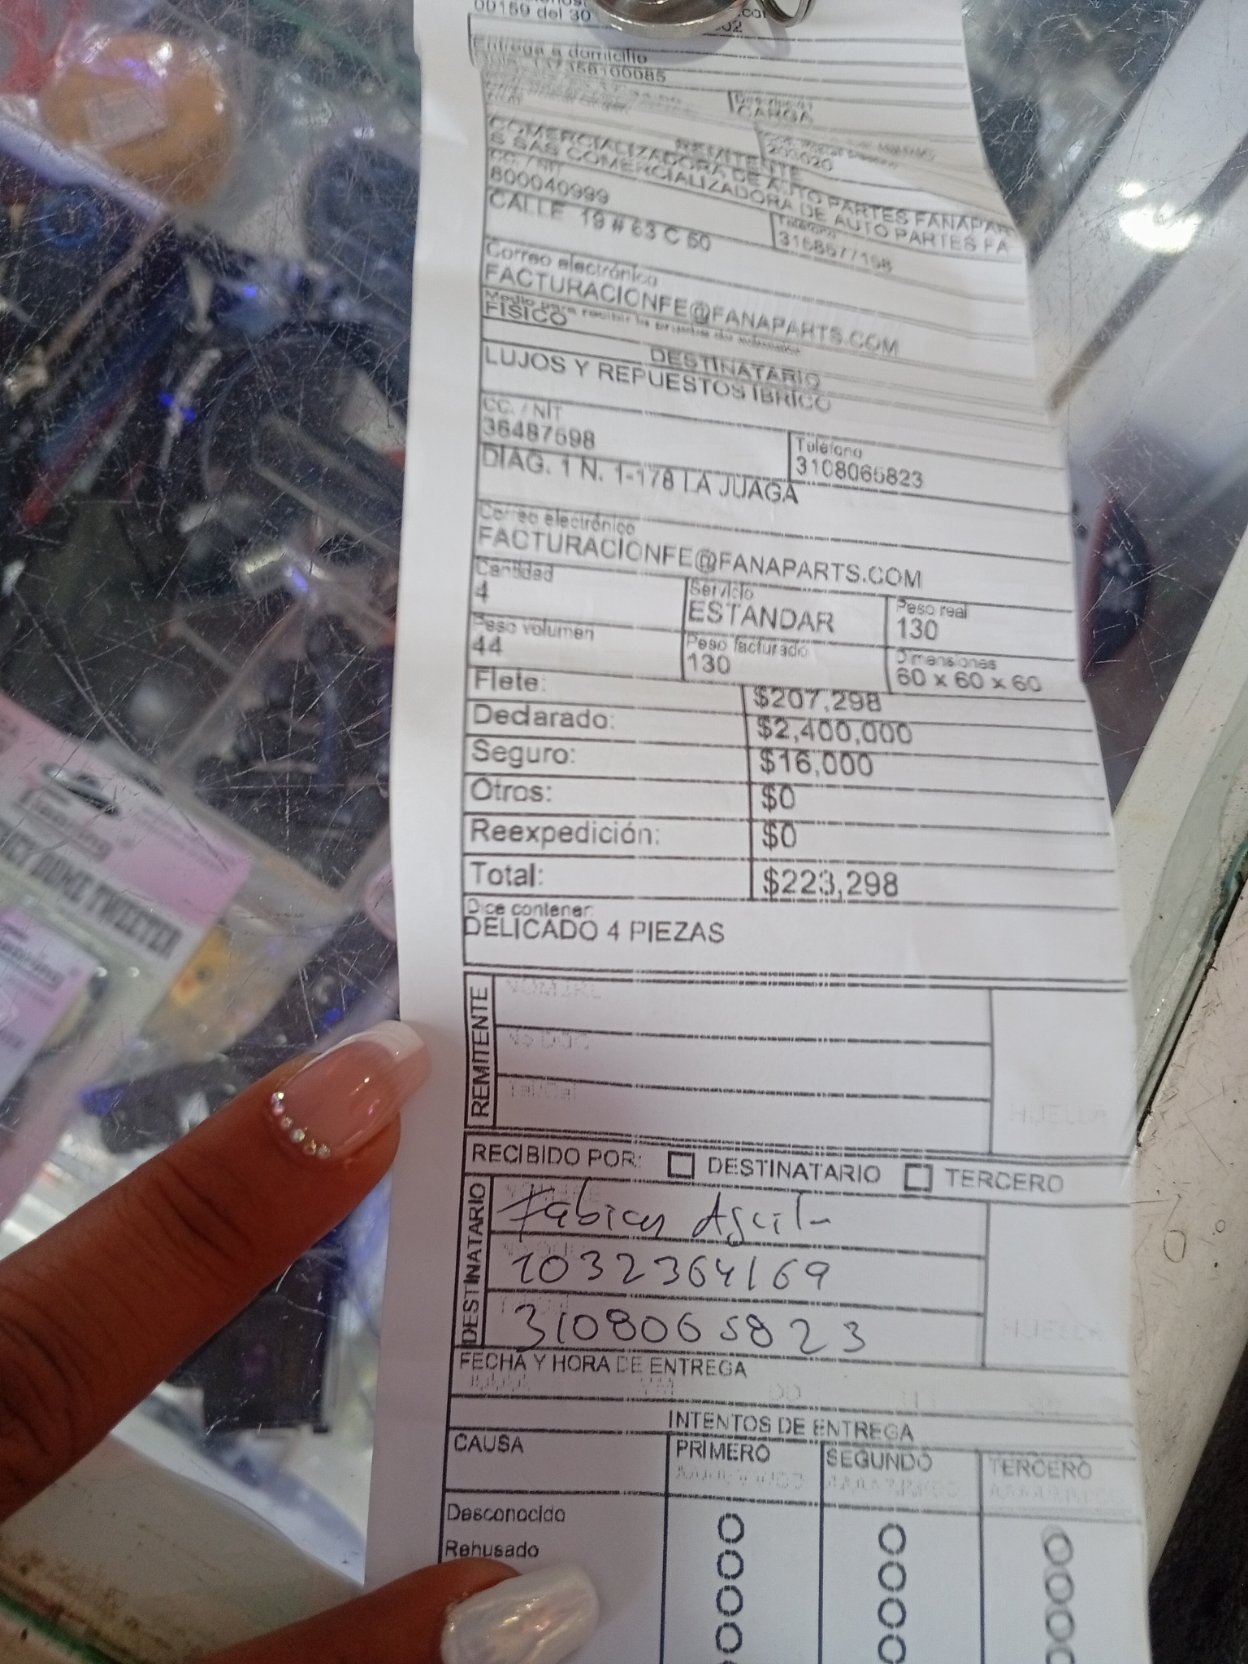 00159 del 30
Entrega a domicilio
CARGA
REMITENTE
COMERCIALIZADORA DE AUTO PARTES FANAPAR
S SAS COMERCIALIZADORA DE AUTO PARTES FA
CC. / NIT
800040999
Teléfono
3168577158
CALLE 19 # 63 C 50
Correo electrónico
FACTURACIONFE@FANAPARTS.COM
FISICO
DESTINATARIO
LUJOS Y REPUESTOS IBRICO
CC. / NIT
36487598
Teléfono
3108065823
DIAG. 1 N. 1-178 LA JUAGA
Correo electrónico
FACTURACIONFE@FANAPARTS.COM
Cantidad
4
Servicio
ESTANDAR
Peso real
130
Peso volumen
44
Peso facturado
130
Dimensiones
60 x 60 x 60
Flete: $207,298
Declarado: $2,400,000
Seguro: $16,000
Otros: $0
Reexpedición: $0
Total: $223,298
Dice contener
DELICADO 4 PIEZAS
REMITENTE
NOMBRE
HUELLA
RECIBIDO POR: DESTINATARIO TERCERO
DESTINATARIO
Fabian Aguil
1032364169
3108065823
HUELLA
FECHA Y HORA DE ENTREGA
INTENTOS DE ENTREGA
CAUSA PRIMERO SEGUNDO TERCERO
Desconocido
Rehusado
TWEETER